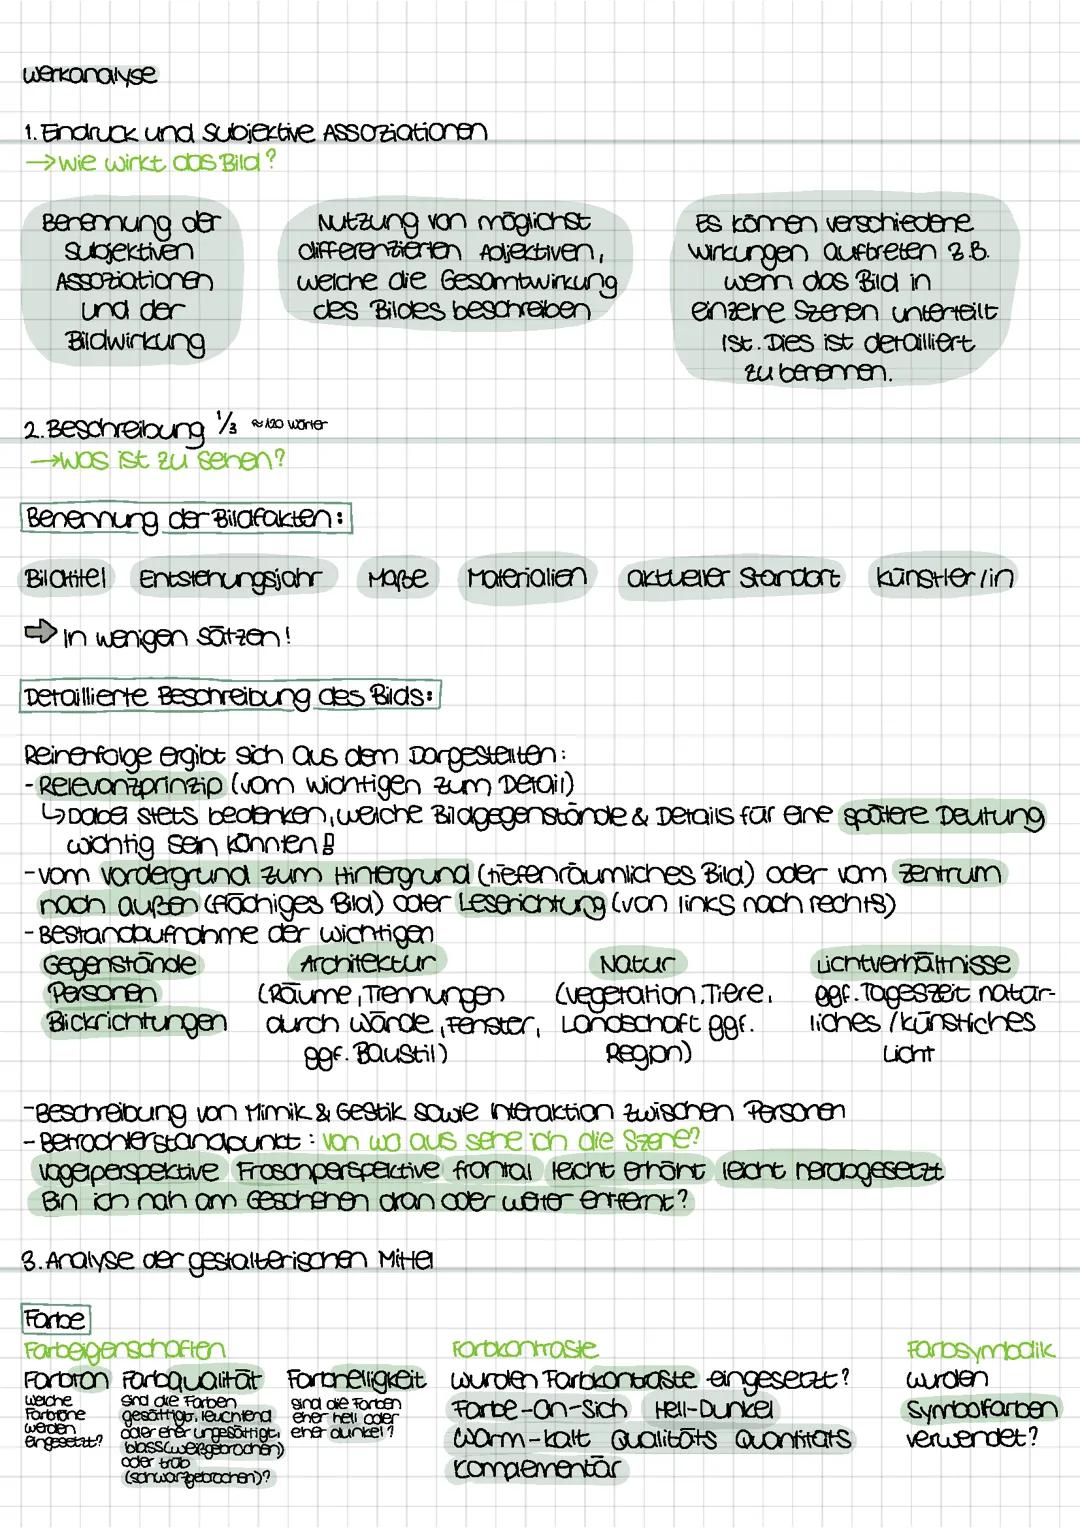 Werkanalyse
1. Eindruck und subjektive Assoziationen
→ wie wirkt das Bild?
Benennung der
subjektiven
Assoziationen
und der
Bildwirkung
Nutzung von möglichst
differenzierten Adjektiven,
welche die Gesamtwirkung
des Bildes beschreiben
Es können verschiedene
Wirkungen auftreten z.B.
wenn das Bild in
einzelne Szenen unterteilt
ist. Dies ist detailliert
zu benennen.
2. Beschreibung 1/3 ≈ 120 Wörter
→ was ist zu sehen?
Benennung der Bildfakten:
Bildtitel Entstehungsjahr Maße Materialien aktueller Standort Künstler/in
⇒ In wenigen Sätzen!
Detaillierte Beschreibung des Bilds:
Reihenfolge ergibt sich aus dem Dargestellten:
- Relevanzprinzip (vom wichtigen zum Detail)
↳ Dabei stets bedenken, welche Bildgegenstände & Details für eine spätere Deutung
wichtig sein könnten!
- vom Vordergrund zum Hintergrund (tiefenräumliches Bild) oder vom Zentrum
nach außen (flächiges Bild) oder Leserichtung (von links nach rechts)
- Bestandaufnahme der wichtigen
Gegenstände
Personen
Blickrichtungen
Architektur
(Räume, Trennungen
durch Wände, Fenster,
ggf. Baustil)
Natur
(Vegetation, Tiere,
Landschaft ggf.
Region)
Lichtverhältnisse
ggf. Tageszeit natür-
liches / künstliches
Licht
- Beschreibung von Mimik & Gestik sowie Interaktion zwischen Personen
- Betrachterstandpunkt: Von wo aus sehe ich die Szene?
Vogelperspektive Froschperspektive frontal leicht erhöht leicht herabgesetzt
Bin ich nah am Geschehen dran oder weiter entfernt?
3. Analyse der gestalterischen Mittel
Farbe
Farbeigenschaften
Farbton
welche
Farbtöne
werden
eingesetzt?
Farbqualität
sind die Farben
gesättigt, leuchtend
oder eher ungesättigt,
blass (weißgebrochen)
oder trüb
(schwarzgebrochen)?
Farbhelligkeit
sind die Farben
eher hell oder
eher dunkel?
Farbkontraste
wurden Farbkontraste eingesetzt?
Farbe-an-Sich Hell-Dunkel
Warm-kalt Qualitäts Quantitäts
Komplementär
Farbsymbolik
wurden
Symbolfarben
verwendet?